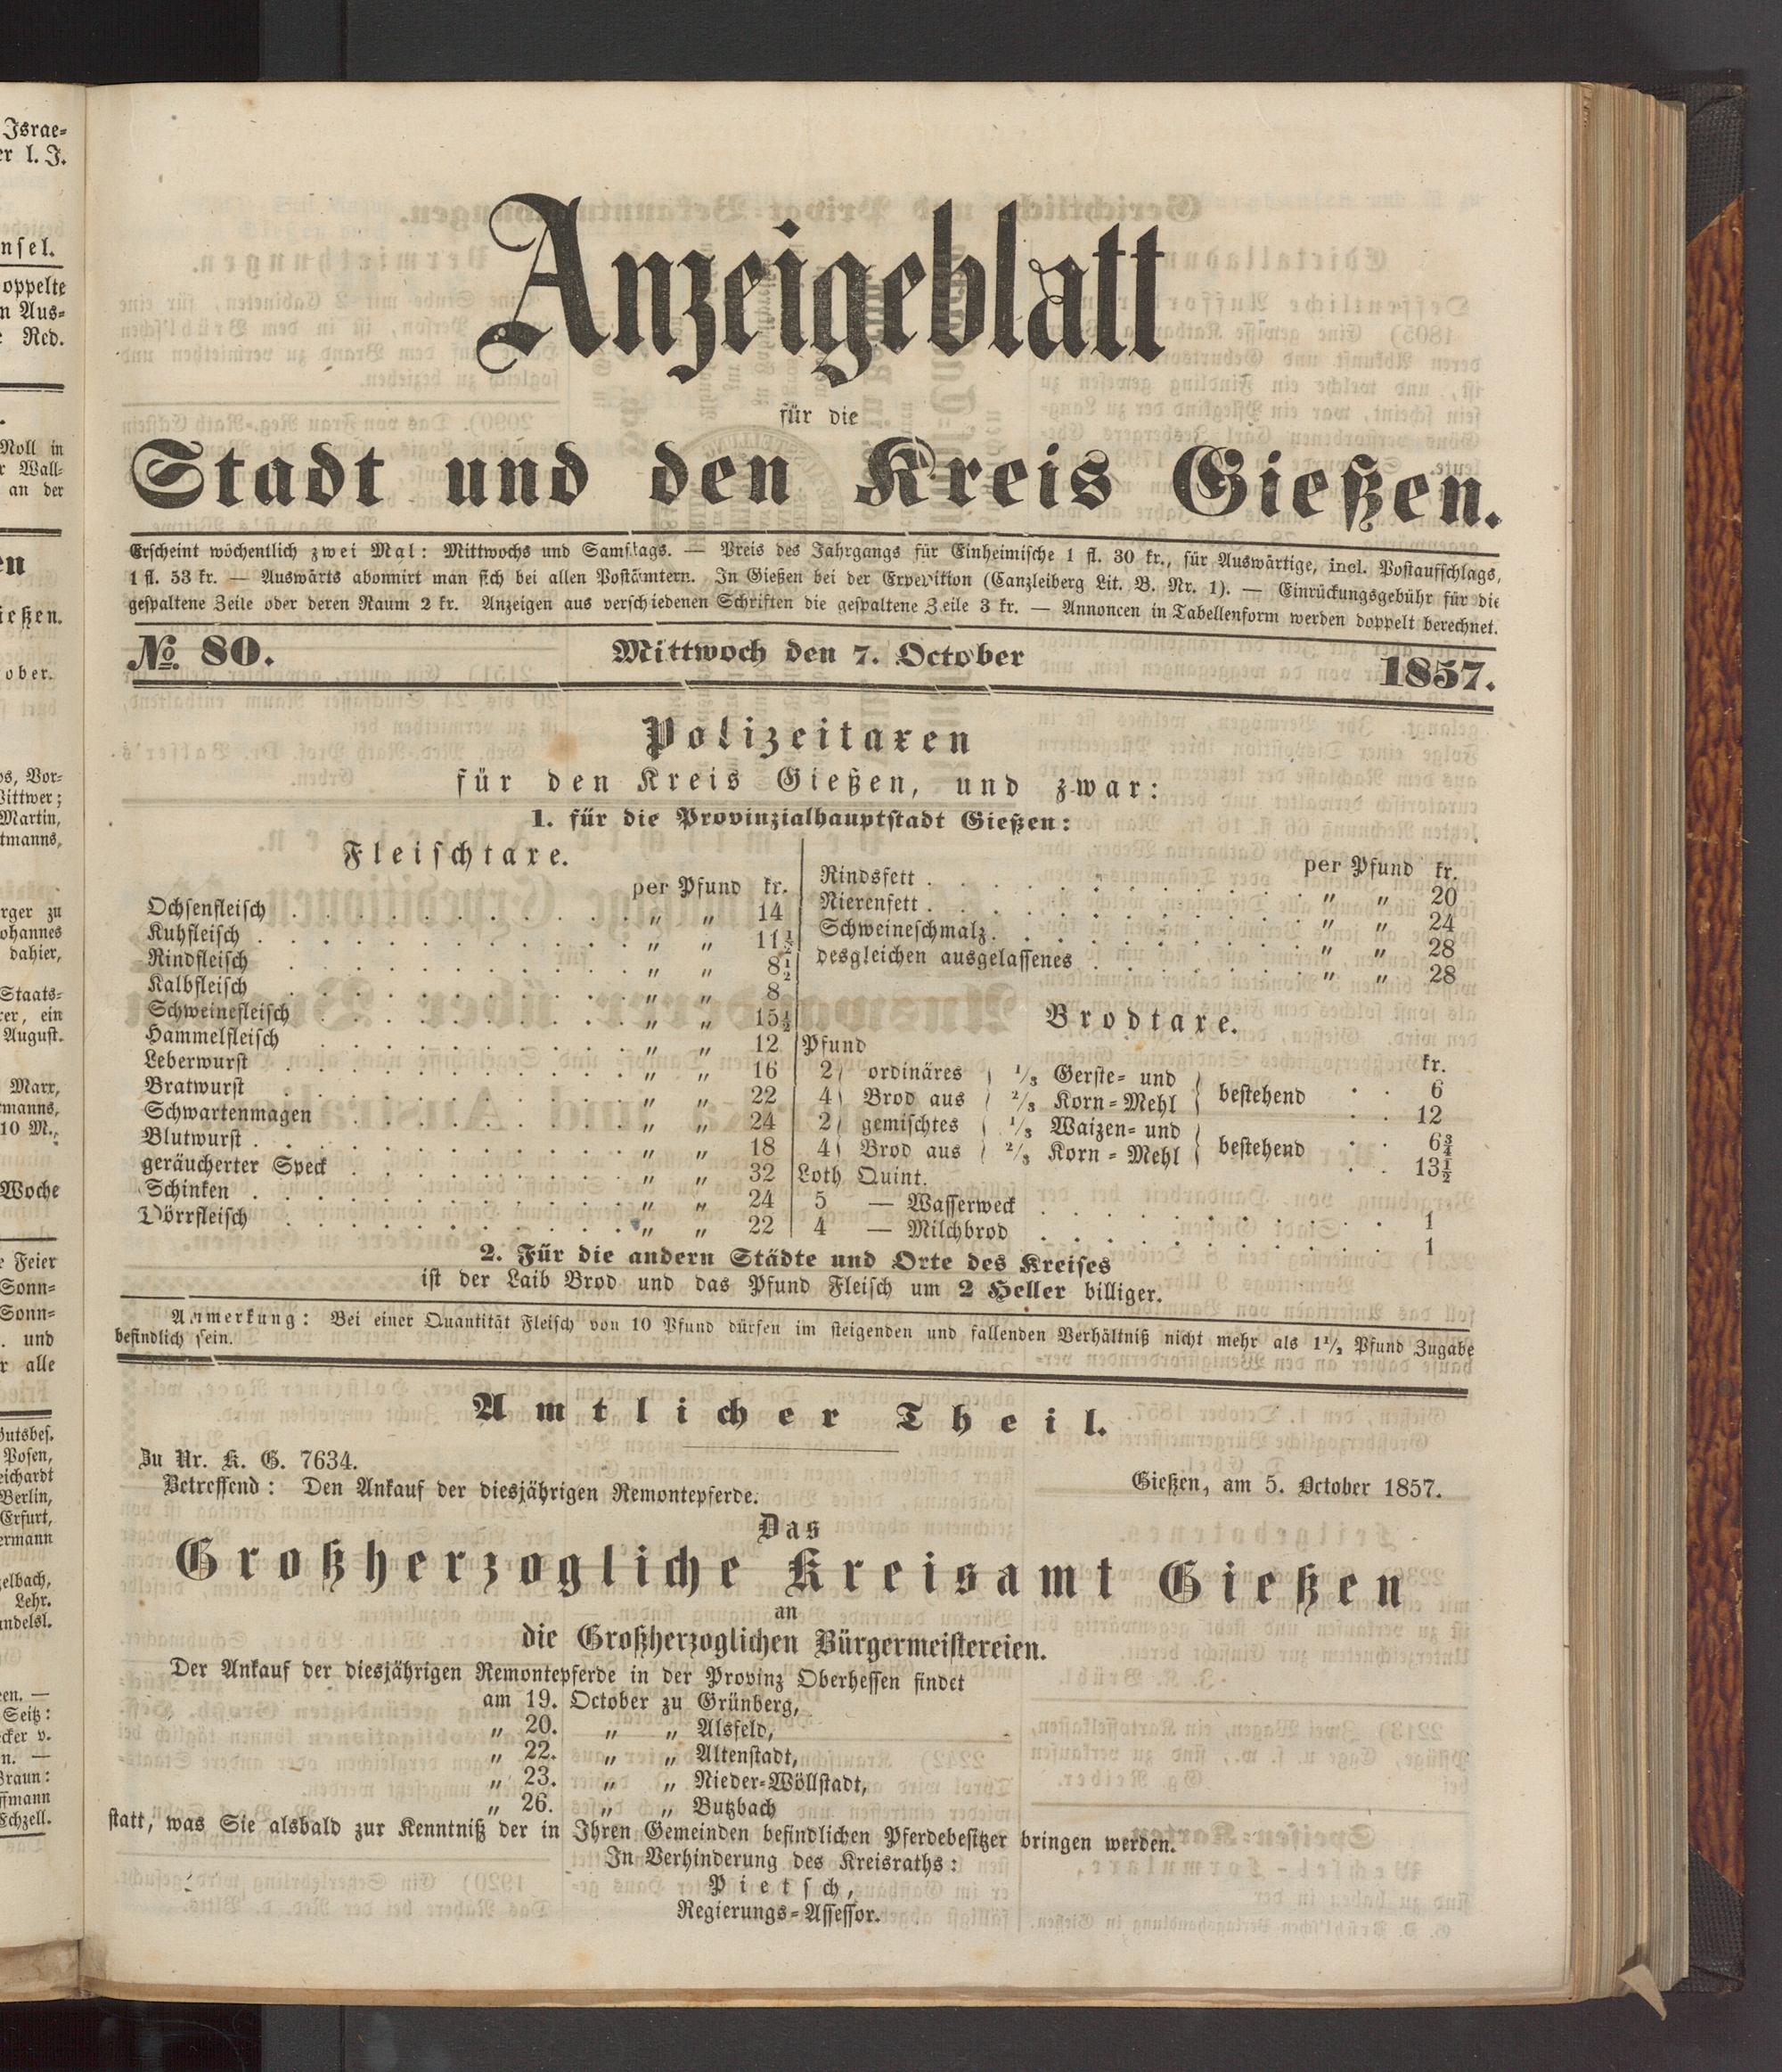 Anzeigeblatt
für die
Stadt und den Kreis Gießen.
Erscheint wöchentlich zwei Mal: Mittwochs und Samstags. — Preis des Jahrgangs für Einheimische 1 fl. 30 kr., für Auswärtige, incl. Postaufschlags,
1 fl. 53 kr. — Auswärts abonnirt man sich bei allen Postämtern. In Gießen bei der Expedition (Canzleiberg Lit. B. Nr. 1). — Einrückungsgebühr für die
gespaltene Zeile oder deren Raum 2 kr. Anzeigen aus verschiedenen Schriften die gespaltene Zeile 3 kr. — Annoncen in Tabellenform werden doppelt berechnet.
№ 80. Mittwoch den 7. October 1857.
Polizeitaxen
für den Kreis Gießen, und zwar:
1. für die Provinzialhauptstadt Gießen:
Fleischtaxe.
per Pfund kr.
Ochsenfleisch . . . „ „ 14
Kuhfleisch . . . „ „ 11½
Rindfleisch . . . „ „ 8½
Kalbfleisch . . . „ „ 8
Schweinefleisch . . . „ „ 15½
Hammelfleisch . . . „ „ 12
Leberwurst . . . „ „ 16
Bratwurst . . . „ „ 22
Schwartenmagen . . . „ „ 24
Blutwurst . . . „ „ 18
geräucherter Speck . . . „ „ 32
Schinken . . . „ „ 24
Dörrfleisch . . . „ „ 22
per Pfund kr.
Rindsfett . . . „ „ 20
Nierenfett . . . „ „ 24
Schweineschmalz . . . „ „ 28
desgleichen ausgelassenes . . . „ „ 28
Brodtaxe.
Pfund kr.
2) ordinäres ( 1/3 Gerste- und ) bestehend . . 6
4) Brod aus ( 2/3 Korn-Mehl ) . . 12
2) gemischtes ( 1/3 Waizen- und ) bestehend . . 6¾
4) Brod aus ( 2/3 Korn-Mehl ) . . 13½
Loth Quint.
5 — Wasserweck . . . 1
4 — Milchbrod . . . 1
2. Für die andern Städte und Orte des Kreises
ist der Laib Brod und das Pfund Fleisch um 2 Heller billiger.
Anmerkung: Bei einer Quantität Fleisch von 10 Pfund dürfen im steigenden und fallenden Verhältniß nicht mehr als 1½ Pfund Zugabe
befindlich sein.
Amtlicher Theil.
Zu Nr. K. G. 7634.
Gießen, am 5. October 1857.
Betreffend: Den Ankauf der diesjährigen Remontepferde.
Das
Großherzogliche Kreisamt Gießen
an
die Großherzoglichen Bürgermeistereien.
Der Ankauf der diesjährigen Remontepferde in der Provinz Oberhessen findet
am 19. October zu Grünberg,
„ 20. „ „ Alsfeld,
„ 22. „ „ Altenstadt,
„ 23. „ „ Nieder-Wöllstadt,
„ 26. „ „ Butzbach
statt, was Sie alsbald zur Kenntniß der in Ihren Gemeinden befindlichen Pferdebesitzer bringen werden.
In Verhinderung des Kreisraths:
Pietsch,
Regierungs-Assessor.